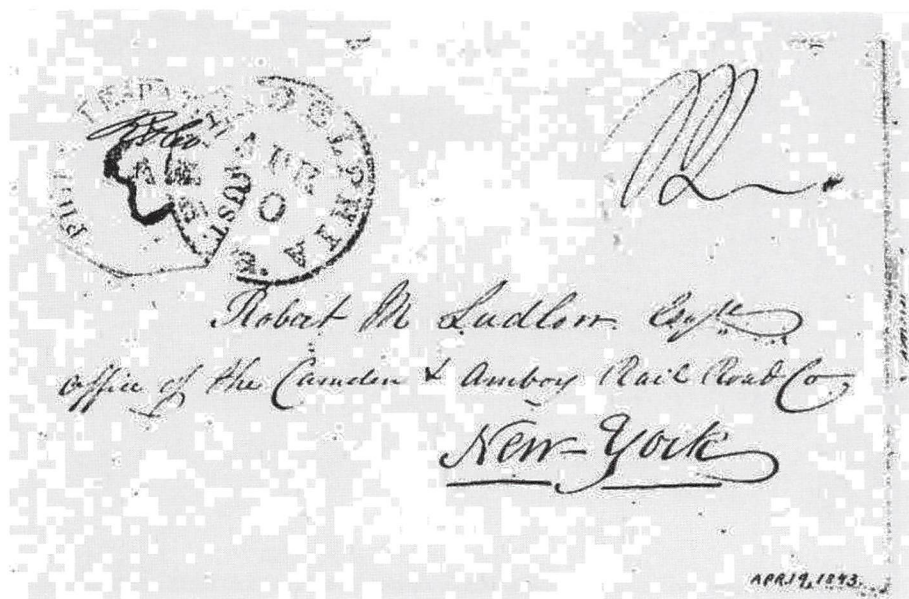 DELPHIA
APR
POST.
Robert M Ludlow Esqre
office of the Camden & Amboy Rail Road Co
New-York
APR 19, 1843.